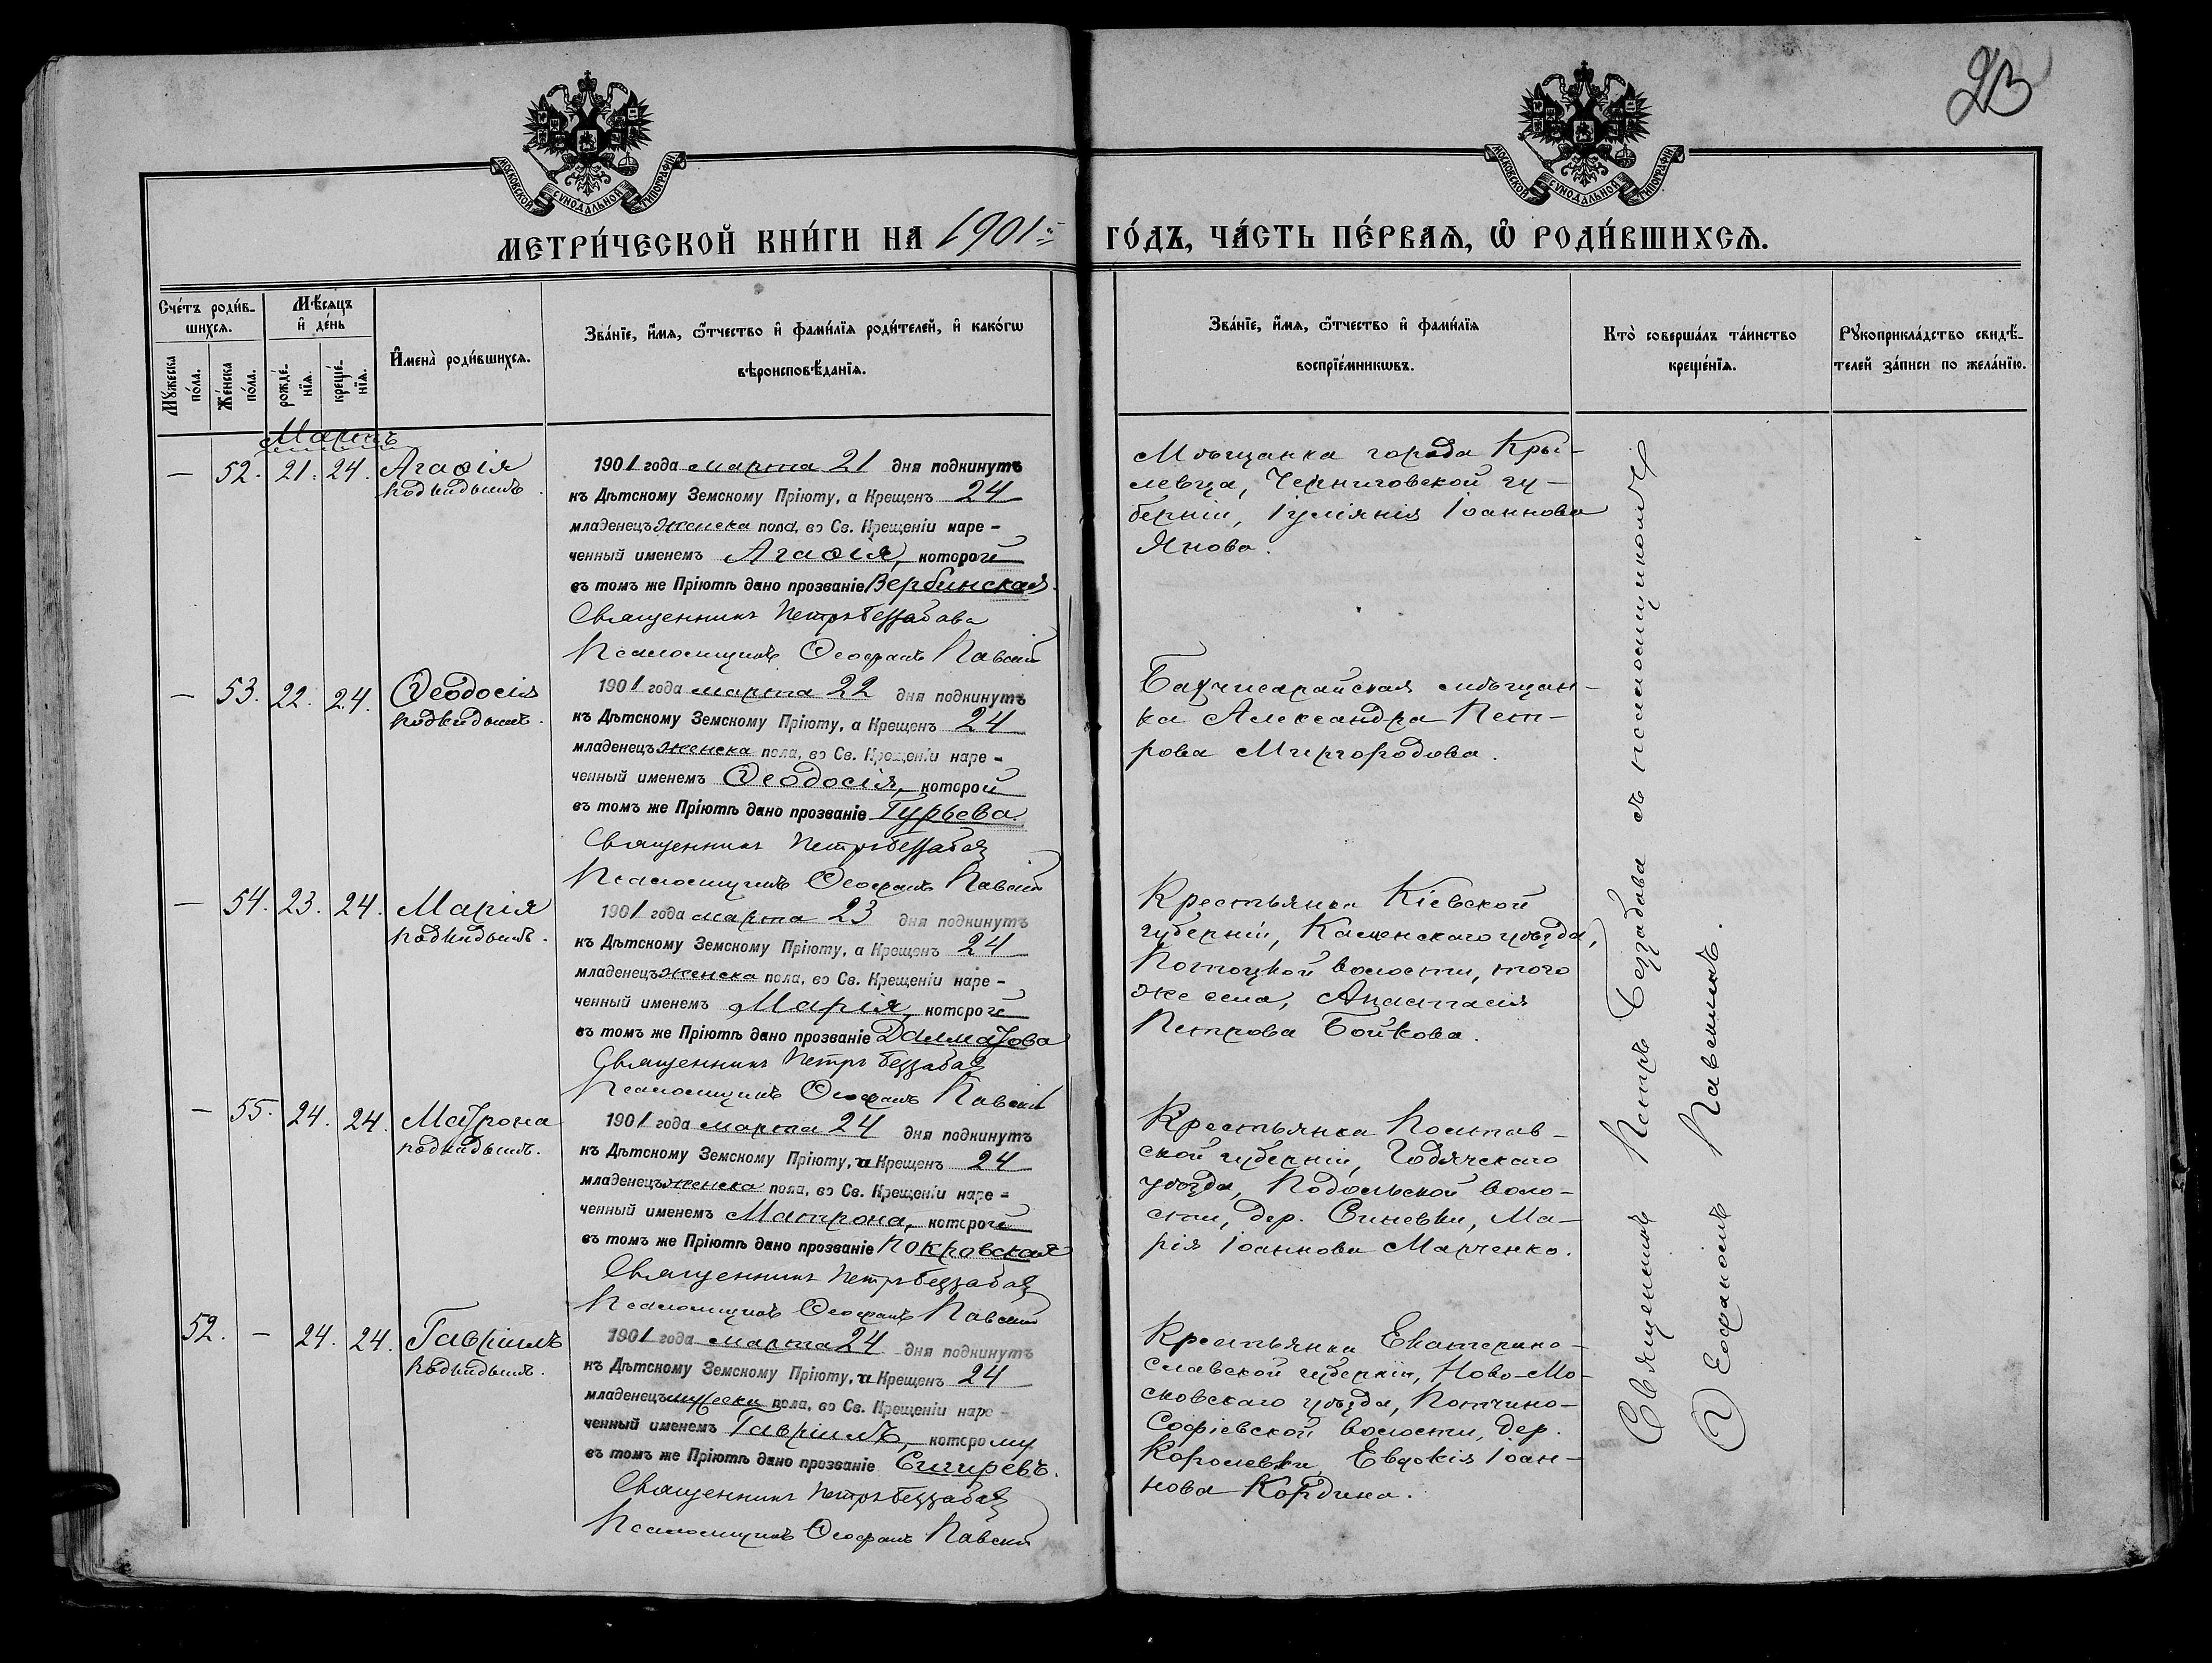 23
МОСКОВСКОЙ СУНОДАЛЬНОЙ ТИПОГРАФІИ.
МОСКОВСКОЙ СУНОДАЛЬНОЙ ТИПОГРАФІИ.
МЕТРИ́ЧЕСКОЙ КНИ́ГИ НА 1901й ГО́ДЪ, ЧА́СТЬ ПЕ́РВАѦ, Ѡ҆ РОДИ́ВШИХСѦ.
Сче́тъ роди́в-
шихсѧ.
Мꙋ́жеска по́ла.
Же́нска по́ла.
Мѣ́сѧцъ
и҆ де́нь
рожде́-нїѧ.
креще́-нїѧ.
И҆мена̀ роди́вшихсѧ.
Зва́нїе, и҆́мѧ, ѻ҆́тчество и҆ фами́лїѧ роди́телей, и҆ како́гѡ
вѣроисповѣ́данїѧ.
Зва́нїе, и҆́мѧ, ѻ҆́тчество и҆ фами́лїѧ
воспрїе́мникѡвъ.
Кто̀ соверша́лъ та́инство
креще́нїѧ.
Рꙋкоприкла́дство свидѣ́-
телей за́писи по жела́нїю.
Мартъ
— 52. 21. 24. Агаѳія
подкидышъ.
1901 года марта 21 дня подкинутъ
къ Дѣтскому Земскому Пріюту, а Крещенъ 24
младенецъ женска пола, во Св. Крещеніи наре-
ченный именемъ Агаѳія, которой
въ томъ же Пріютѣ дано прозваніе Вербинская.
Священникъ Петръ Беззабава
Псаломщикъ Ѳеофанъ Павскій
Мѣщанка города Кры-
левца, Черниговской гу-
берніи, Іуліянія Іоаннова
Янова.
— 53. 22. 24. Ѳеодосія
подкидышъ.
1901 года марта 22 дня подкинутъ
къ Дѣтскому Земскому Пріюту, а Крещенъ 24
младенецъ женска пола, во Св. Крещеніи наре-
ченный именемъ Ѳеодосія, которой
въ томъ же Пріютѣ дано прозваніе Гурьева.
Священникъ Петръ Беззабава
Псаломщикъ Ѳеофанъ Павскій
Бахчисарайская мѣщан-
ка Александра Пет-
рова Миргородова.
— 54. 23. 24. Марія
подкидышъ.
1901 года марта 23 дня подкинутъ
къ Дѣтскому Земскому Пріюту, а Крещенъ 24
младенецъ женска пола, во Св. Крещеніи наре-
ченный именемъ Марія, которой
въ томъ же Пріютѣ дано прозваніе Далматова
Священникъ Петръ Беззабава
Псаломщикъ Ѳеофанъ Павскій
Крестьянка Кіевской
губерніи, Каменскаго уѣзда,
Потоцкой волости, того
же села, Анастасія
Петрова Бойкова.
— 55. 24. 24. Матрона
подкидышъ.
1901 года марта 24 дня подкинутъ
къ Дѣтскому Земскому Пріюту, а Крещенъ 24
младенецъ женска пола, во Св. Крещеніи наре-
ченный именемъ Матрона, которой
въ томъ же Пріютѣ дано прозваніе Покровская
Священникъ Петръ Беззабава
Псаломщикъ Ѳеофанъ Павскій
Крестьянка Полтав-
ской губерніи, Годячскаго
уѣзда, Подольской воло-
сти, дер. Синевки, Ма-
рія Іоаннова Марченко.
52. — 24. 24. Гавріилъ
подкидышъ.
1901 года марта 24 дня подкинутъ
къ Дѣтскому Земскому Пріюту, а Крещенъ 24
младенецъ мужеска пола, во Св. Крещеніи наре-
ченный именемъ Гавріилъ, которому
въ томъ же Пріютѣ дано прозваніе
Священникъ Петръ Беззабава
Псаломщикъ Ѳеофанъ Павскій
Крестьянка Екатерино-
славской губерніи, Ново-Мо-
сковскаго уѣзда,
Софіевской волости, дер.
Королевки, Евдокія Іоан-
нова Кордина.
Священникъ Петръ Беззабава съ псаломщикомъ
Ѳеофаномъ Павскимъ.